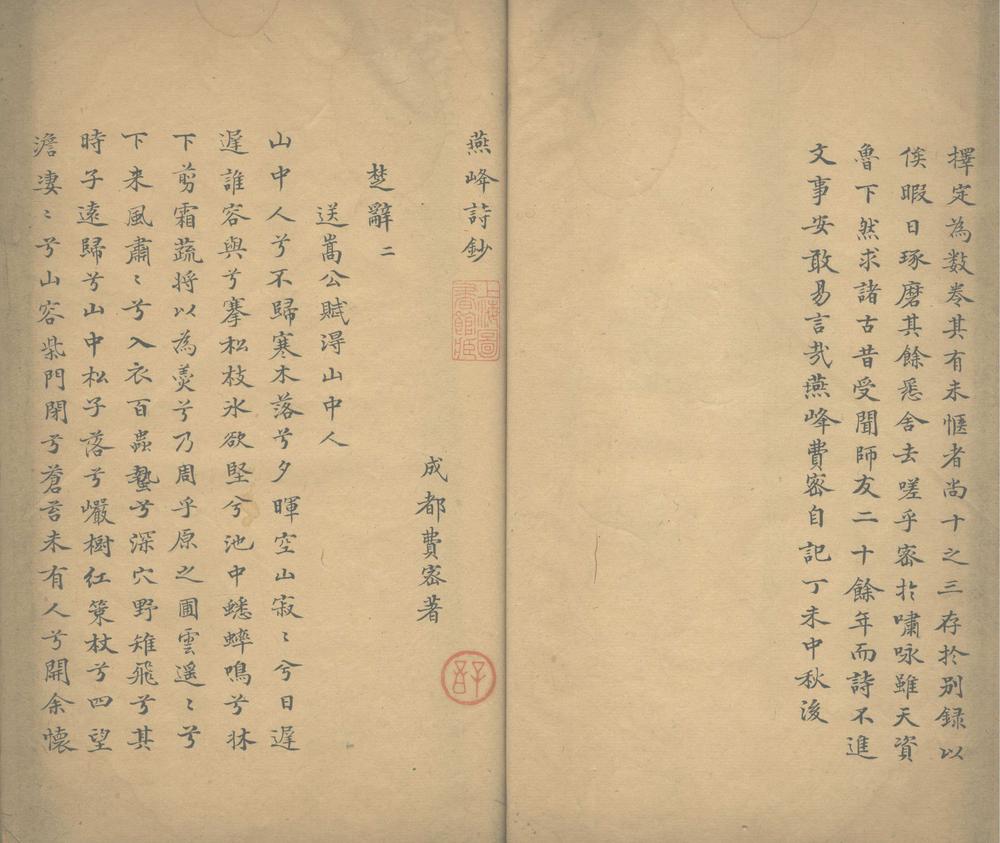 擇定為数巻其有未愜者尚十之三存扵別録以
俟暇日琢磨其餘悉舍去嗟乎密扵嘯咏雖天資
魯下然求諸古昔受聞師友二十餘年而詩不進
文事安敢易言㢤燕峰費密自記丁未中秋後
燕峰詩鈔
上海圖書館藏
成都費密著
楚辭二
送嵩公賦得山中人
山中人兮不歸寒木落兮夕暉空山寂〻兮日遅
遅誰容與兮搴松枝氷欲堅兮池中蟋蟀鳴兮牀
下剪霜蔬将以為羮兮乃周乎原之圃雲遥〻兮
下来風肅〻兮入衣百蟲蟄兮深穴野雉飛兮其
時子遠歸兮山中松子落兮巗樹红策杖兮四望
澹淒〻兮山容柴門閉兮蒼苔未有人兮開余懐